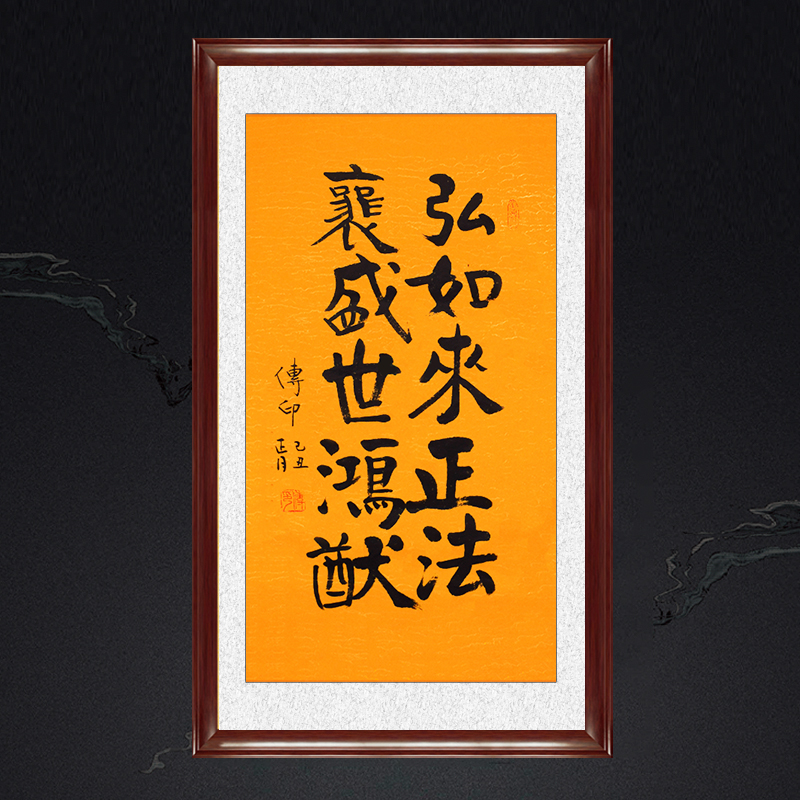 弘如來正法
襄盛世鴻猷
傳印
己丑
正月